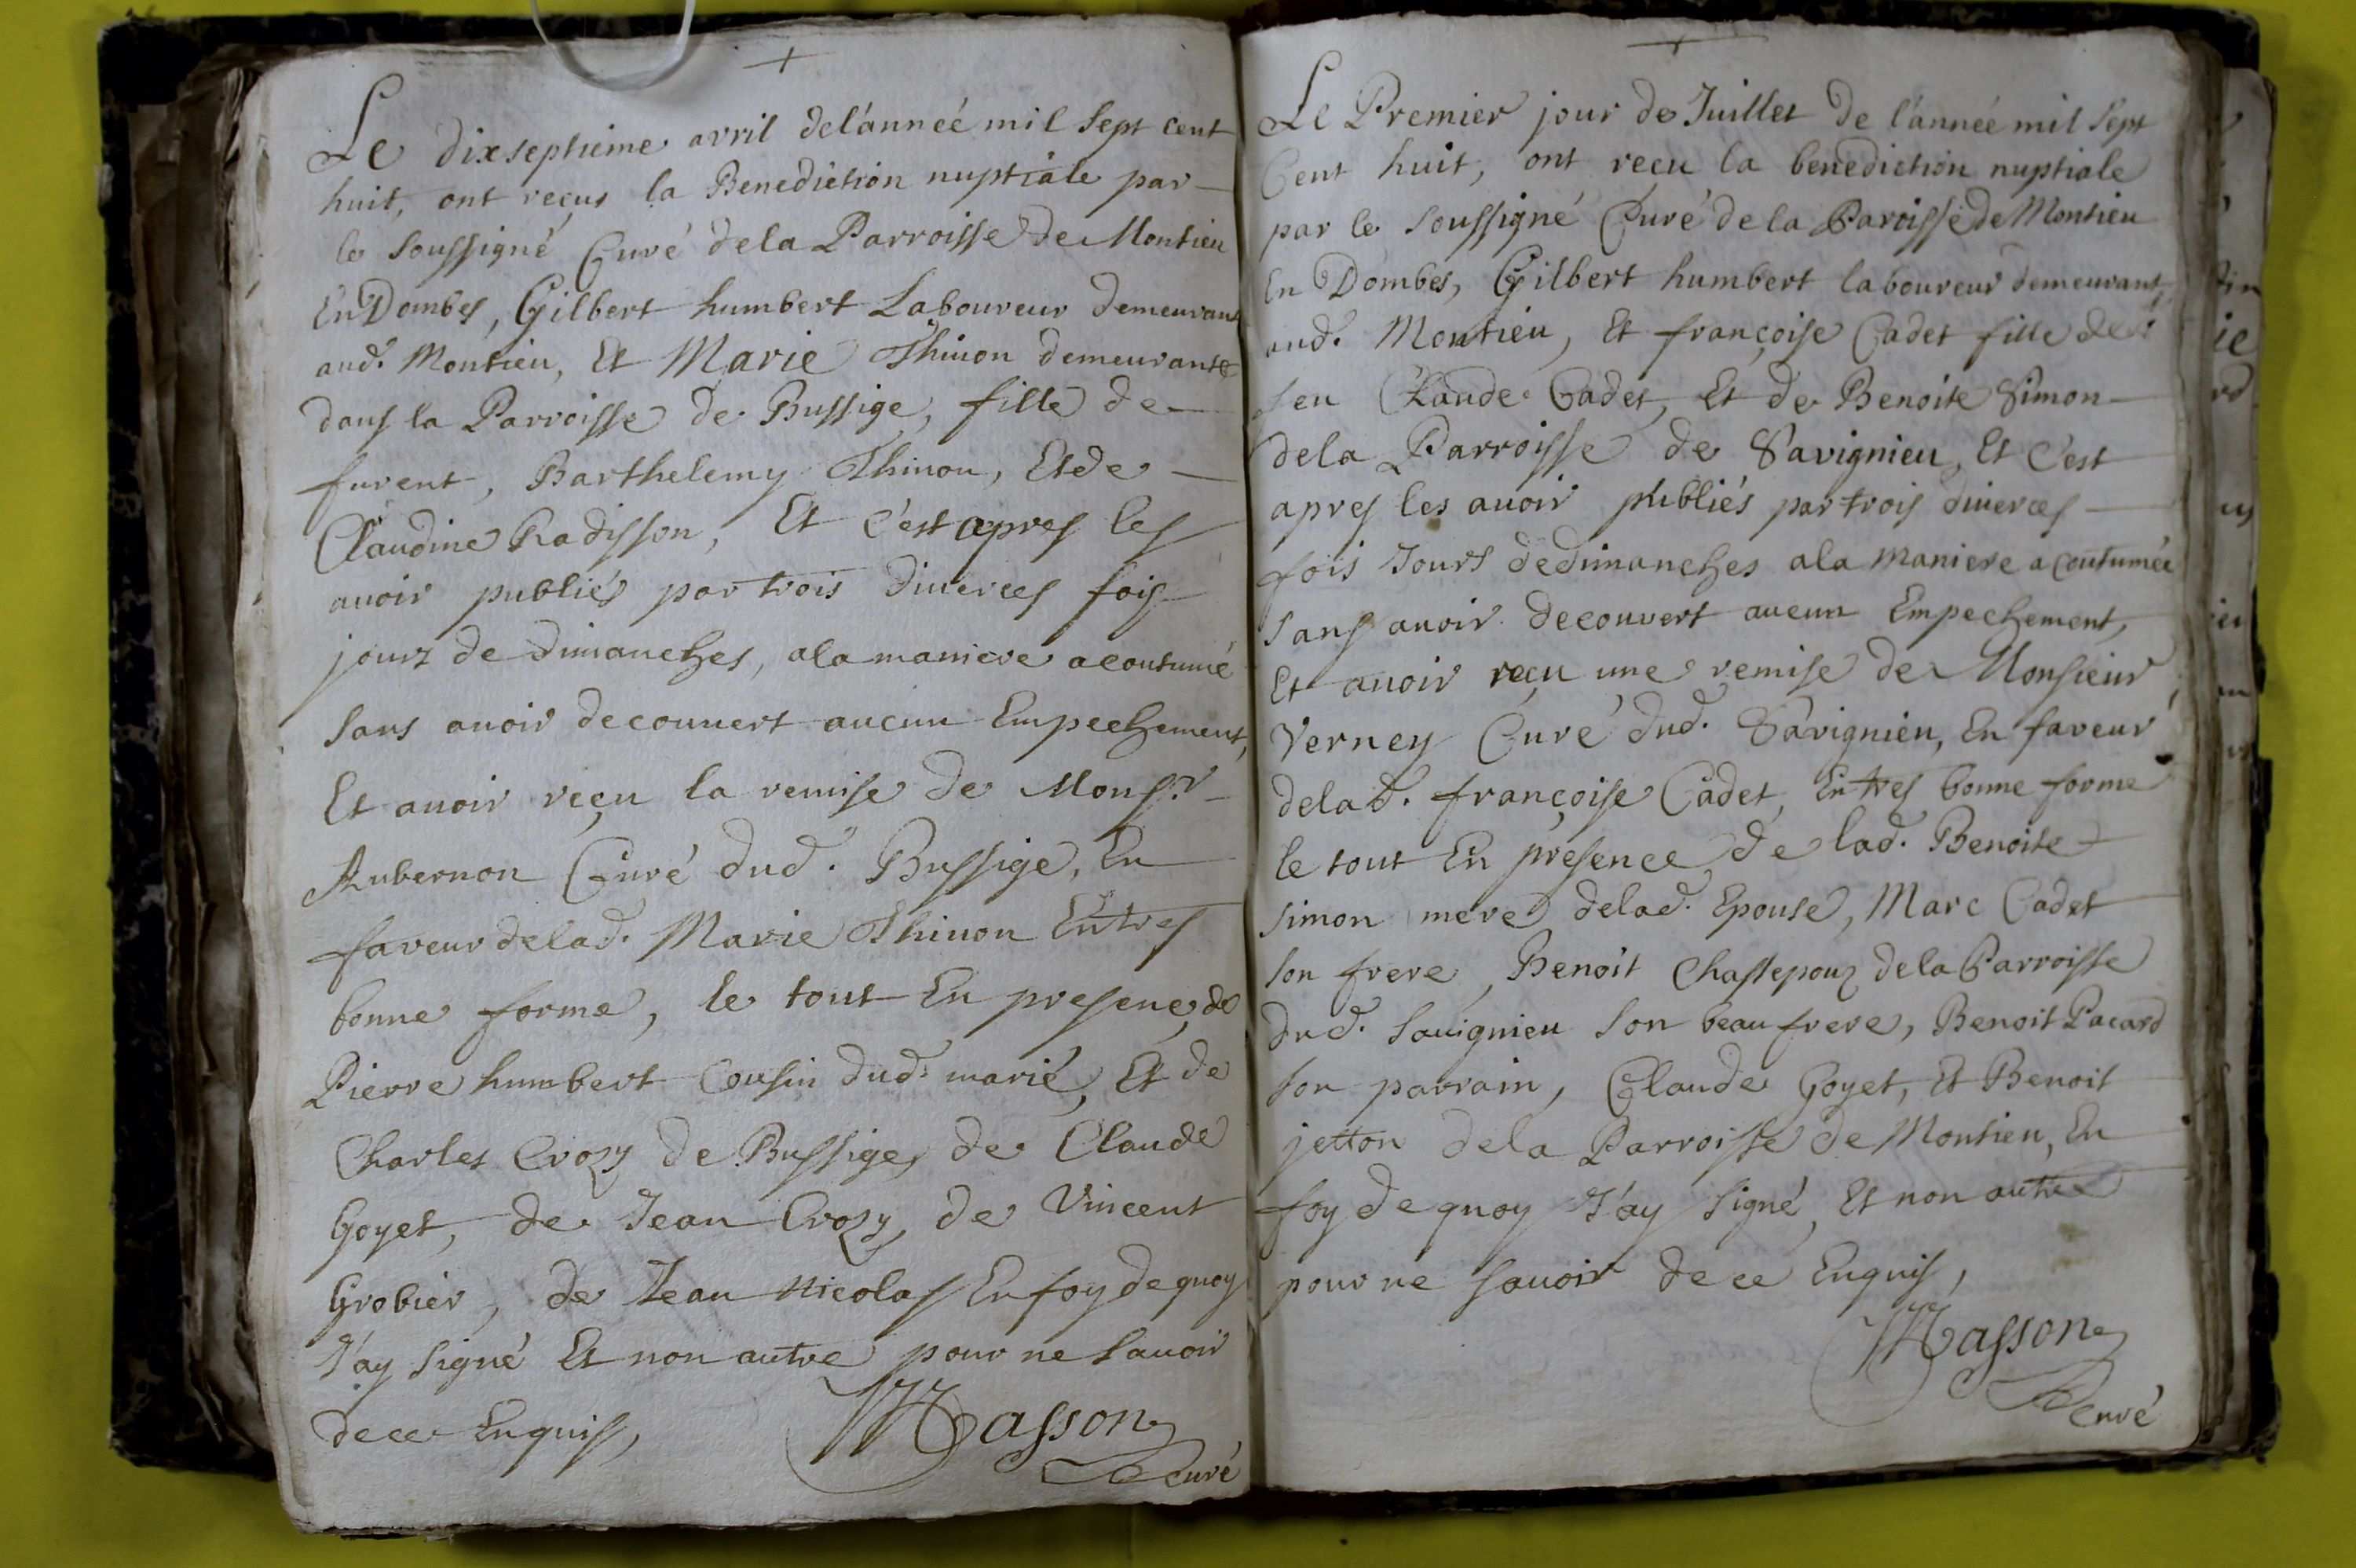 Le dixseptieme avril de l'anneé mil sept cent
huit, ont reçus la Benediction nuptiale par
le soussigné Curé de la Parroisse de Montieu
En Dombes, Gilbert humbert Laboureur demeurant
aud. Montieu, Et Marie Thinon demeurante
dans la Parroisse de Bussige, fille de
furent, Barthelemy Thinon, Et de
Claudine Radisson, Et c'est apres les
avoir publiés par trois diverces fois
jours de dimanches, a la maniere acoutumé
sans avoir decouvert aucun Empechement,
Et avoir reçu la remise de Monsr
Aubernon Curé dud. Bussige, En
faveur de lad. Marie Thinon En tres
bonne forme, le tout En presence de
Pierre humbert Cousin dud. marié, Et de
Charles Crozy de Bussige, de Claude
Goyet, de Jean Crozy, de Vincent
Grobier, de Jean Nicolas En foy de quoy
J'ay signé Et non autre pour ne savoir
de ce Enquis,
Masson
curé
Le Premier jour de Juillet de l'anneé mil sept
Cent huit, ont reçu la benediction nuptiale
par le soussigné Curé de la Paroisse de Montieu
En Dombes, Gilbert humbert laboureur demeurant
aud. Montieu, Et françoise Cadet fille de
feu Claude Cadet, Et de Benoite Simon
de la Parroisse de Savignieu, Et c'est
apres les avoir publiés par trois diverces
fois Jours de dimanches a la maniere acoutumée
sans avoir decouvert aucun Empechement,
Et avoir reçu une remise de Monsieur
Verney Curé dud. Savignieu, En faveur
de lad. françoise Cadet, En tres bonne forme
le tout En presence de lad. Benoite
simon mere de lad. Epouse, Marc Cadet
son frere, Benoit Chassepouz de la Parroisse
dud. Savignieu son beau frere, Benoit Pacard
son parrain, Claude Goyet, Et Benoit
jetton de la Parroisse de Montieu, En
foy de quoy J'ay signé, Et non autre
pour ne savoir de ce Enquis,
Masson
curé